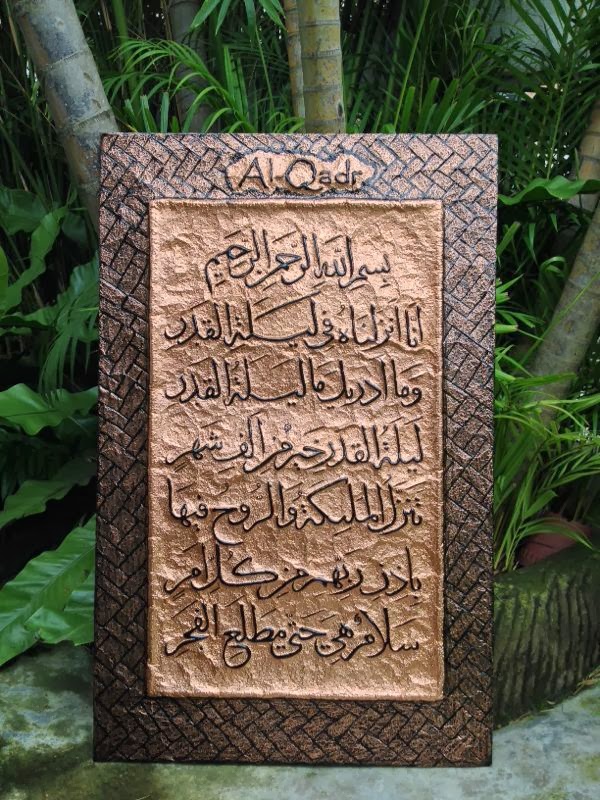 Al-Qadr
بسم الله الرحمن الرحيم
انا انزلناه في ليلة القدر
وما ادريك ما ليلة القدر
ليلة القدر خير من الف شهر
تنزل الملئكة والروح فيها
باذن ربهم من كل امر
سلام هي حتى مطلع الفجر